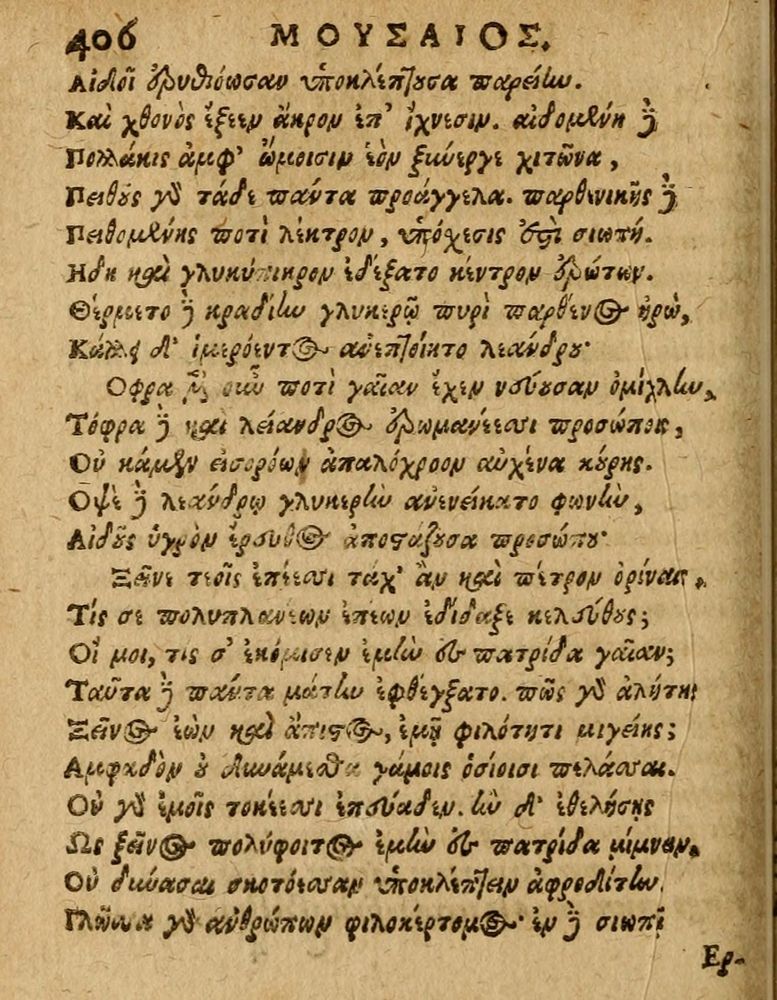 406 ΜΟΥΣΑΙΟΣ.
Αἰδοῖ ἐρυθιόωσαν ὑποκλέπτουσα παρείην.
Καὶ χθονὸς ἔξεεν ἄκρον ἐπ' ἴχνεσιν. αἰδομένη δὲ
Πολλάκις ἀμφ' ὤμοισιν ἑὸν ξυνέεργε χιτῶνα,
Πειθοῦς γὰρ τάδε πάντα προάγγελα. παρθενικῆς δὲ
Πειθομένης ποτὶ λέκτρον, ὑπόχεσις ἐστὶ σιωπή.
Ηδη καὶ γλυκύπικρον ἐδέξατο κέντρον ἐρώτων.
Θέρμετο δὲ κραδίην γλυκερῷ πυρὶ παρθένος ἡρὼ,
Κάλλει δ' ἱμερόεντος ἀνεπτοίητο λεάνδρου·
Οφρα μὲν οὖν ποτὶ γαῖαν ἔχεν νεύουσαν ὀμίχλην,
Τόφρα δὲ καὶ λείανδρος ἐρωμανέεσσι προσώποις,
Οὐ κάμεν εἰσορόων ἁπαλόχροον αὐχένα κούρης.
Οψὲ δὲ λεάνδρῳ γλυκερὴν ἀνενείκατο φωνὴν,
Αἰδοῦς ὑγρὸν ἔρευθος ἀποστάζουσα προσώπου·
Ξεῖνε τεοῖς ἐπέεσσι τάχ' ἂν καὶ πέτρον ὀρίναις,
Τίς σε πολυπλανέων ἐπέων ἐδίδαξε κελεύθους;
Οἴ μοι, τίς σ' ἐκόμισεν ἐμὴν ἐς πατρίδα γαῖαν;
Ταῦτα δὲ πάντα μάτην ἐφθέγξατο. πῶς γὰρ ἀλήτης
Ξεῖνος ἐὼν καὶ ἄπιστος, ἐμῇ φιλότητι μιγείης;
Αμφαδὸν οὐ δυνάμεσθα γάμοις ὁσίοισι πελάσσαι.
Οὐ γὰρ ἐμοῖς τοκέεσσι ἐπεύαδεν. ἢν δ' ἐθελήσῃς
Ως ξεῖνος πολύφοιτος ἐμὴν ἐς πατρίδα μίμνειν,
Οὐ δύνασαι σκοτόεσσαν ὑποκλέπτειν ἀφροδίτην.
Γλῶσσα γὰρ ἀνθρώπων φιλοκέρτομος· ἐν δὲ σιωπῇ
Ερ-